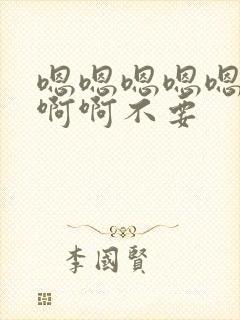 嗯嗯嗯嗯嗯
啊啊不要
李國賢